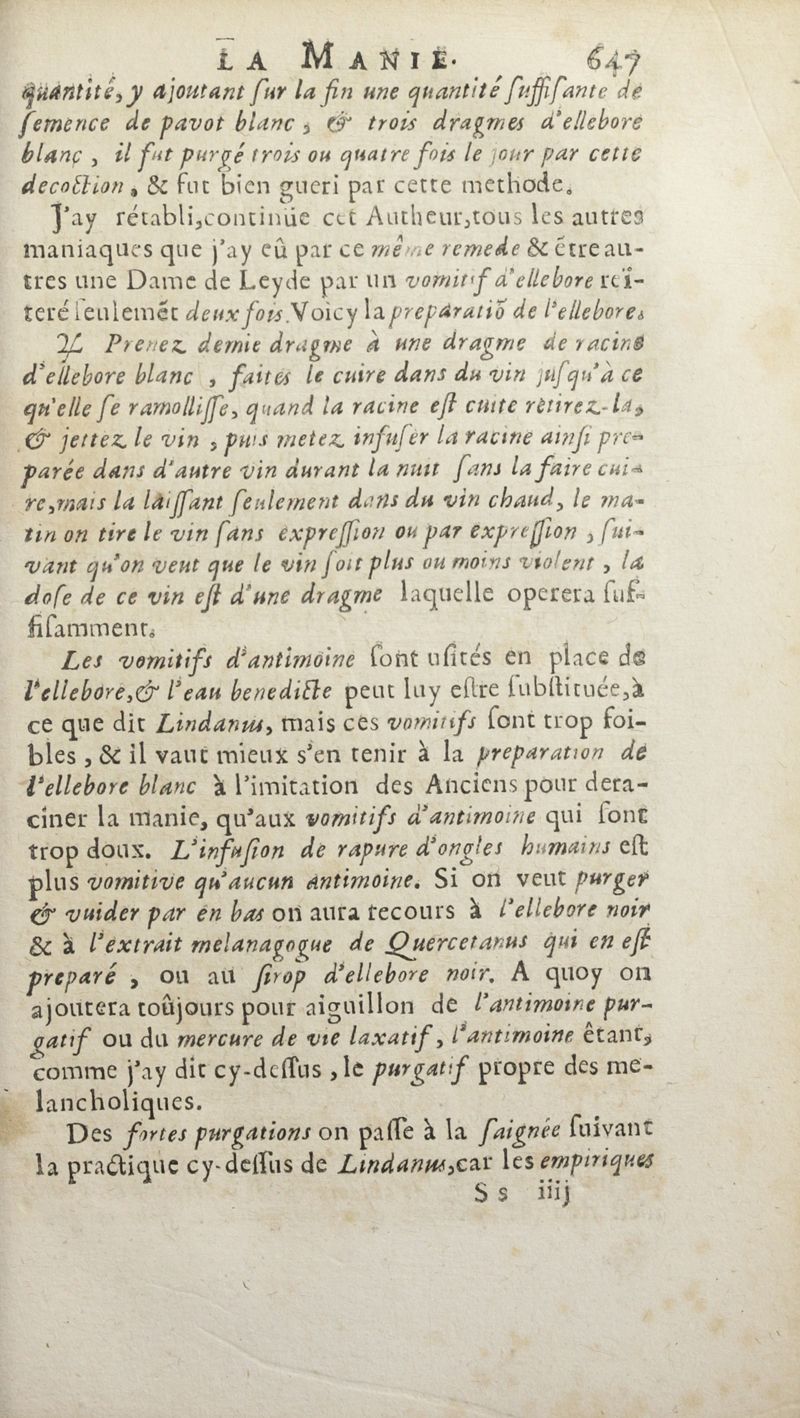 LA MANIE. 647
quantité, y ajoutant ſur la fin une quantité ſuffiſante de
ſemence de pavot blanc, & trois dragmes d'ellebore
blanc, il fut purgé trois ou quatre fois le jour par cette
decoction, & fut bien gueri par cette methode.
J'ay rétabli, continüe cet Autheur, tous les autres
maniaques que j'ay eû par ce même remede & étre au-
tres une Dame de Leyde par un vomitif d'ellebore reï-
teré ſeulemẽt deux fois. Voicy la preparatiõ de l'ellebore.
♃ Prenez demie dragme à une dragme de racine
d'ellebore blanc, faites le cuire dans du vin juſqu'à ce
qu'elle ſe ramolliſſe, quand la racine eſt cuite retirez-la,
& jettez le vin, puis metez infuſer la racine ainſi pre-
parée dans d'autre vin durant la nuit ſans la faire cui-
re, mais la laiſſant ſeulement dans du vin chaud, le ma-
tin on tire le vin ſans expreſſion ou par expreſſion, ſui-
vant qu'on veut que le vin ſoit plus ou moins violent, la
doſe de ce vin eſt d'une dragme laquelle operera ſuf-
fiſamment.
Les vomitifs d'antimoine ſont uſités en place de
l'ellebore, & l'eau benedicte peut luy eſtre ſubſtituée, à
ce que dit Lindanus, mais ces vomitifs ſont trop foi-
bles, & il vaut mieux s'en tenir à la preparation de
l'ellebore blanc à l'imitation des Anciens pour dera-
ciner la manie, qu'aux vomitifs d'antimoine qui ſont
trop doux. L'infuſion de rapure d'ongles humains eſt
plus vomitive qu'aucun antimoine. Si on veut purger
& vuider par en bas on aura recours à l'ellebore noir
& à l'extrait melanagogue de Quercetanus qui en eſt
preparé, ou au ſirop d'ellebore noir. A quoy on
ajoutera toûjours pour aiguillon de l'antimoine pur-
gatif ou du mercure de vie laxatif, l'antimoine êtant,
comme j'ay dit cy-deſſus, le purgatif propre des me-
lancholiques.
Des fortes purgations on paſſe à la ſaignée ſuivant
la practique cy-deſſus de Lindanus, car les empiriques
S s iiij